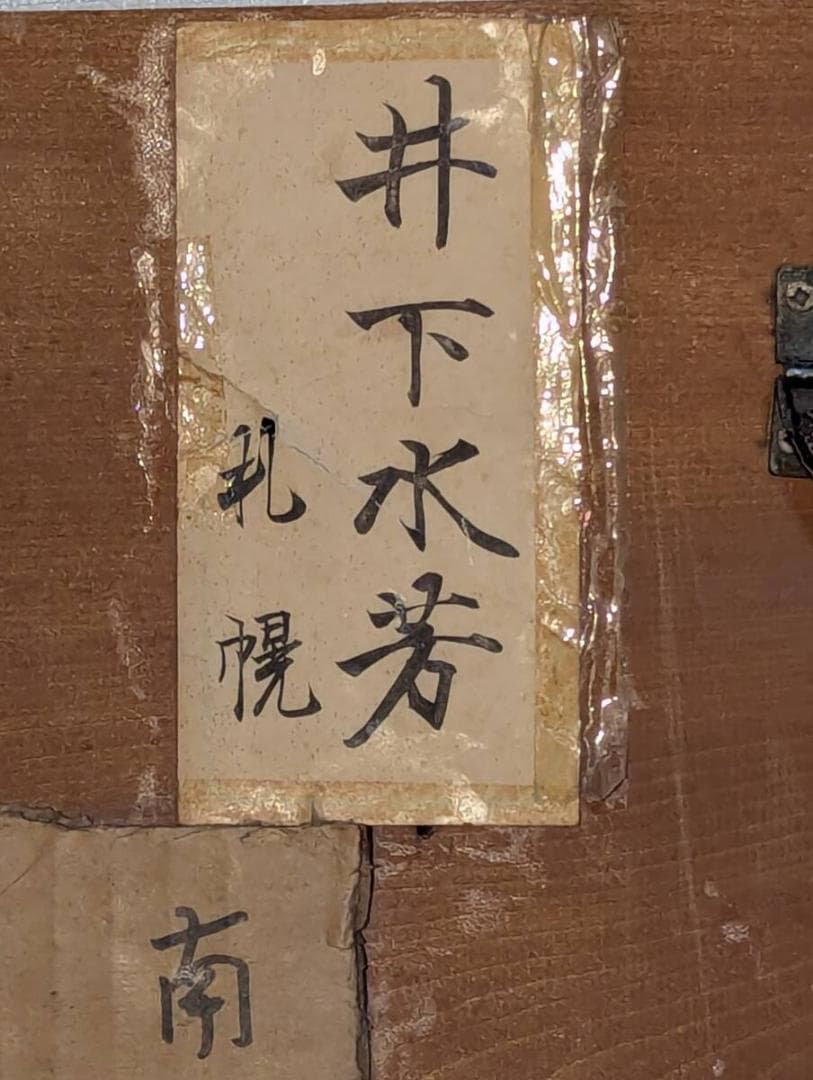 井下水芳
札幌
南